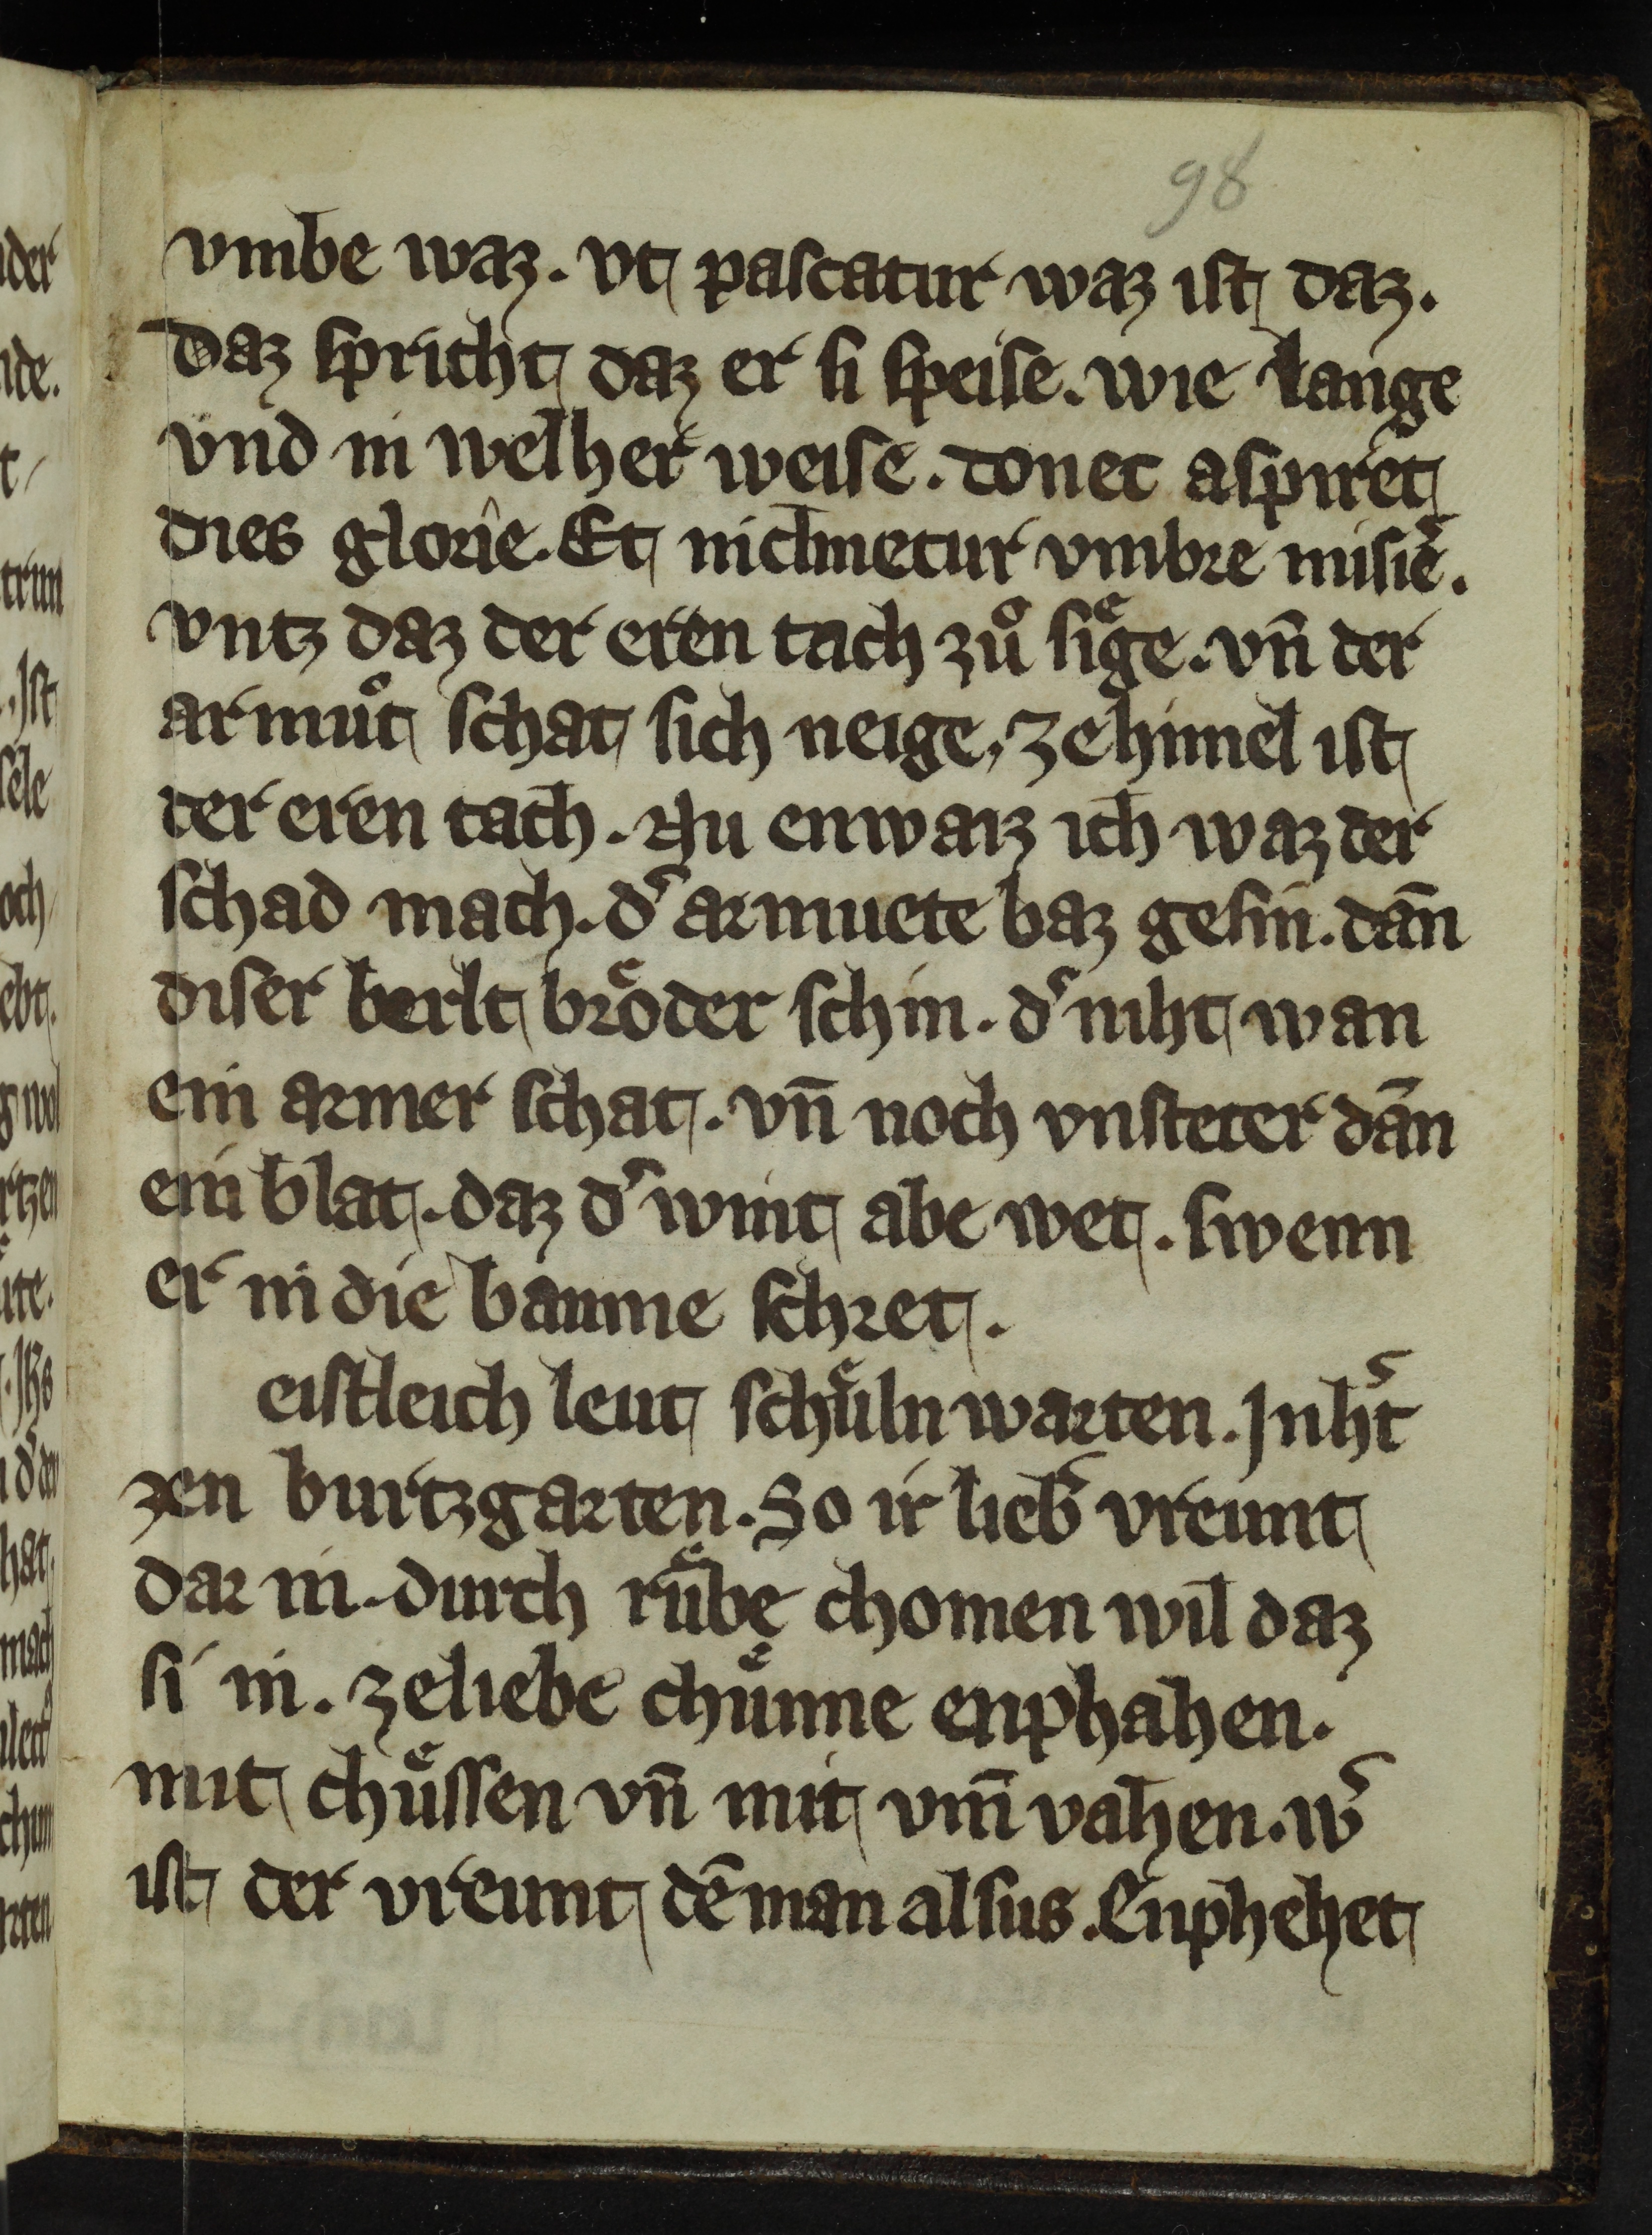 98
vmbe waz. vt pascatur waz ist daz.
Daz spricht daz er si speise. wie lange
vnd in welher weise. donec aspiret
dies glorie. Et inclinetur vmbre misie᷑.
vntz daz der eren tach zuͦ sige. vn̄ der
armuͦt schat sich neige. ze himel ist
der eren tach. Nu enwaiz ich waz der
schad mach. d᷑ armuete baz gesin. dan̄
diser berlt broͤder schin. d᷑ niht wan
ein armer schat. vn̄ noch vnsteter dan̄
ein blat. daz d᷑ wint abe wet. swenn
er in die baume schret.
eistleich leut schuͤln warten. Jn h᷑t
zen burtzgarten. So ir lieb᷑ vreunt
dar in. durch ruͤbe chomen wil daz
si in. ze liebe chuͤnne enphahen.
mit chuͤssen vn̄ mit vm̄ vahen. w᷑
ist der vreunt dē man alsus. Enphehet